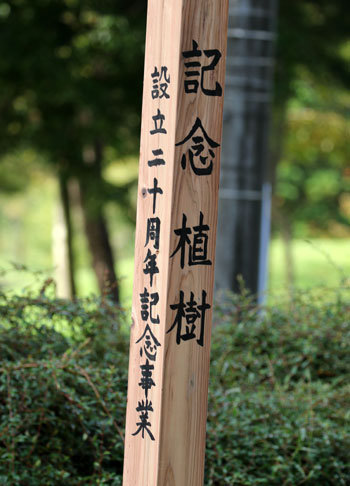 記念植樹
設立二十周年記念事業